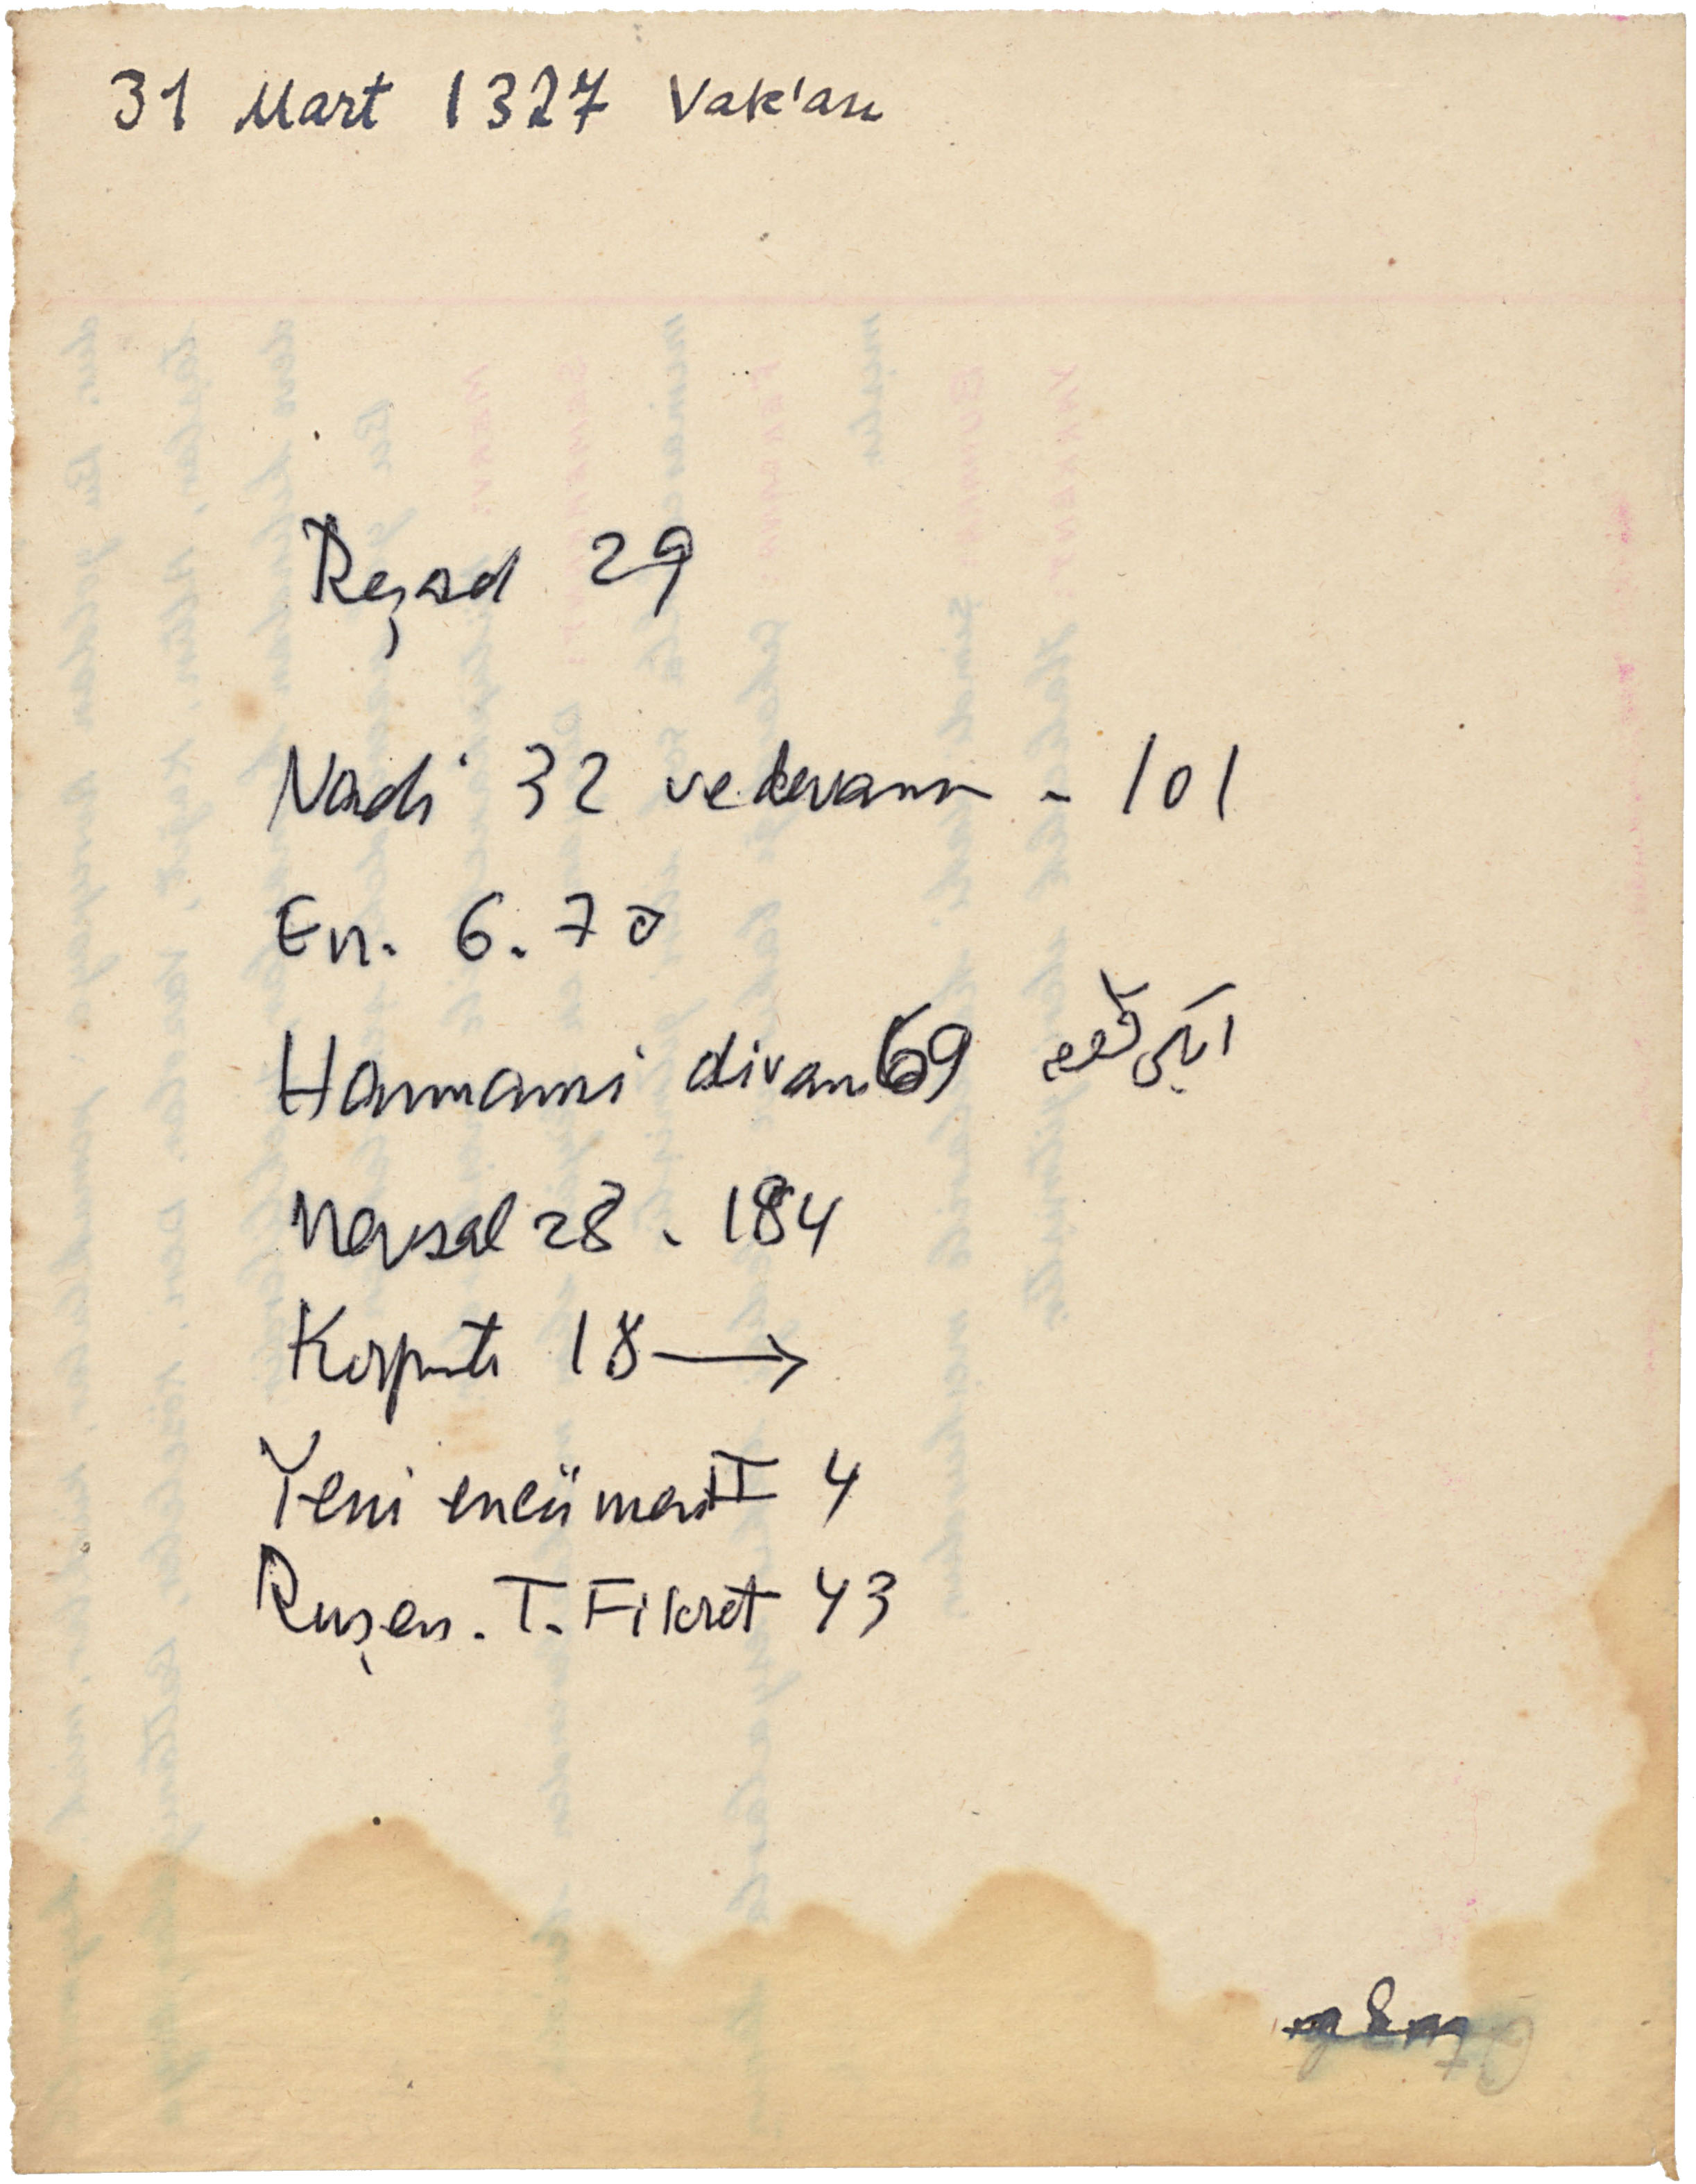 31 Mart 1327 Vak'ası
Reşad 29
Nadi 32 ve devamı - 101
En. 6. 70
Hammami divanı 69 ایکی قطعه
Nevsal 28. 184
18 →
Yeni encümen II 4
Ruşen. T. Fikret 43